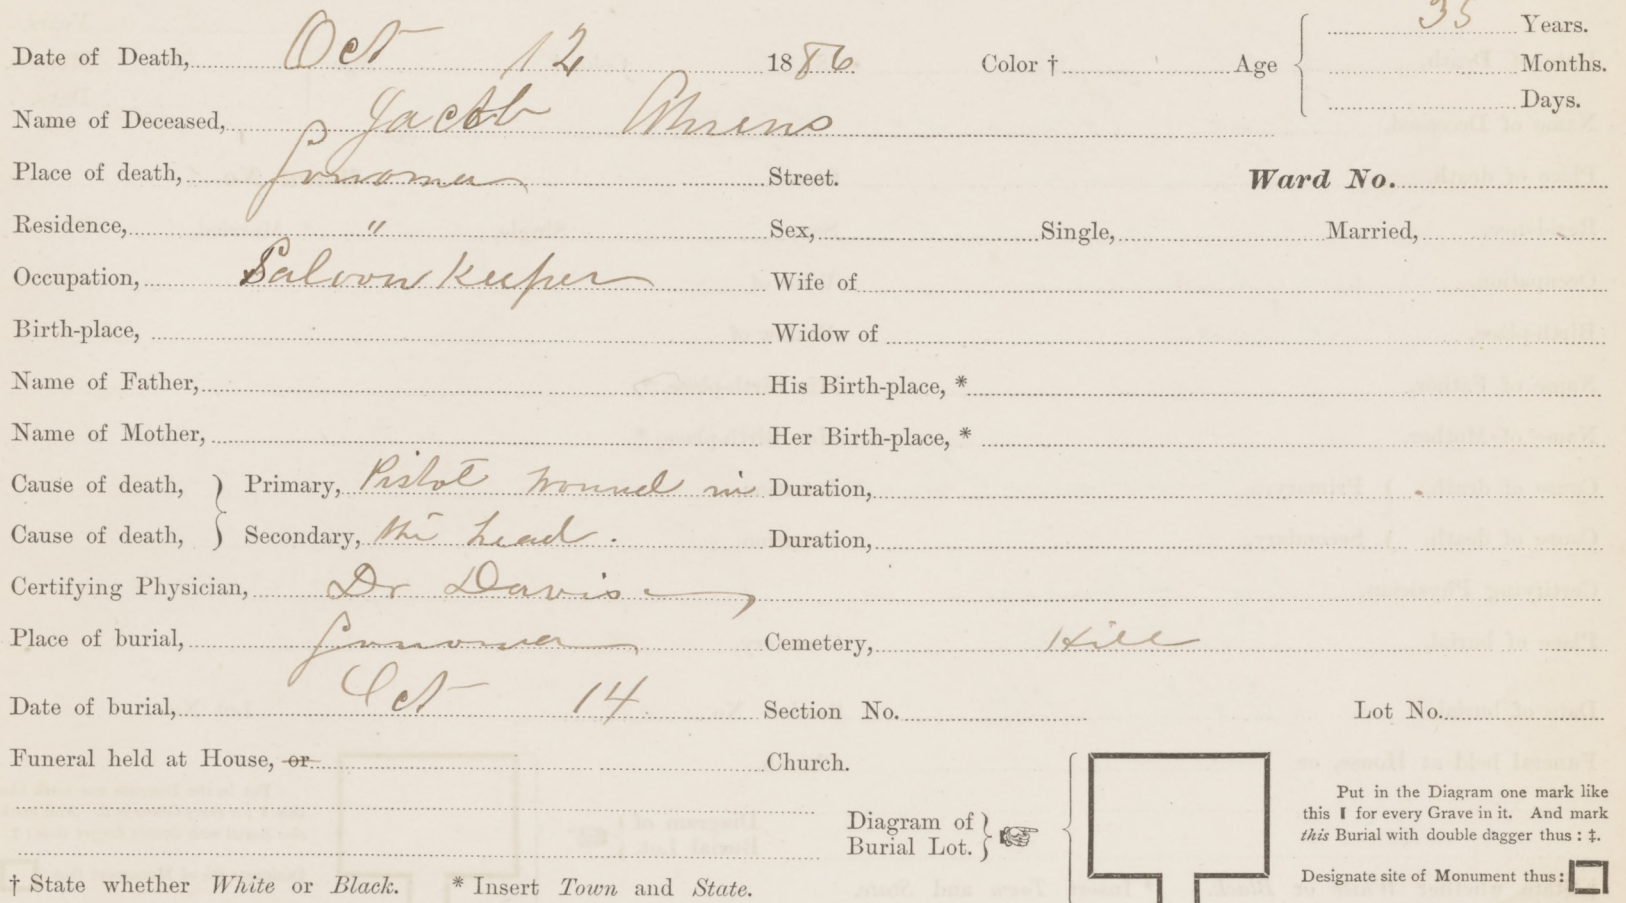 35 Years.
Date of Death, Oct 12 1886 Color † Age Months.
Days.
Name of Deceased, Jacob Ahrens
Place of death, Sonoma Street. Ward No.
Residence, " Sex, Single, Married,
Occupation, Saloon Keeper Wife of
Birth-place, Widow of
Name of Father, His Birth-place, *
Name of Mother, Her Birth-place, *
Cause of death, } Primary, Pistol wound in Duration,
Cause of death, } Secondary, the head. Duration,
Certifying Physician, Dr Davis
Place of burial, Sonoma Cemetery, Hill
Date of burial, Oct 14 Section No. Lot No.
Funeral held at House, or Church.
Diagram of Burial Lot. }
Put in the Diagram one mark like
this I for every Grave in it. And mark
this Burial with double dagger thus : ‡.
Designate site of Monument thus:
† State whether White or Black. * Insert Town and State.